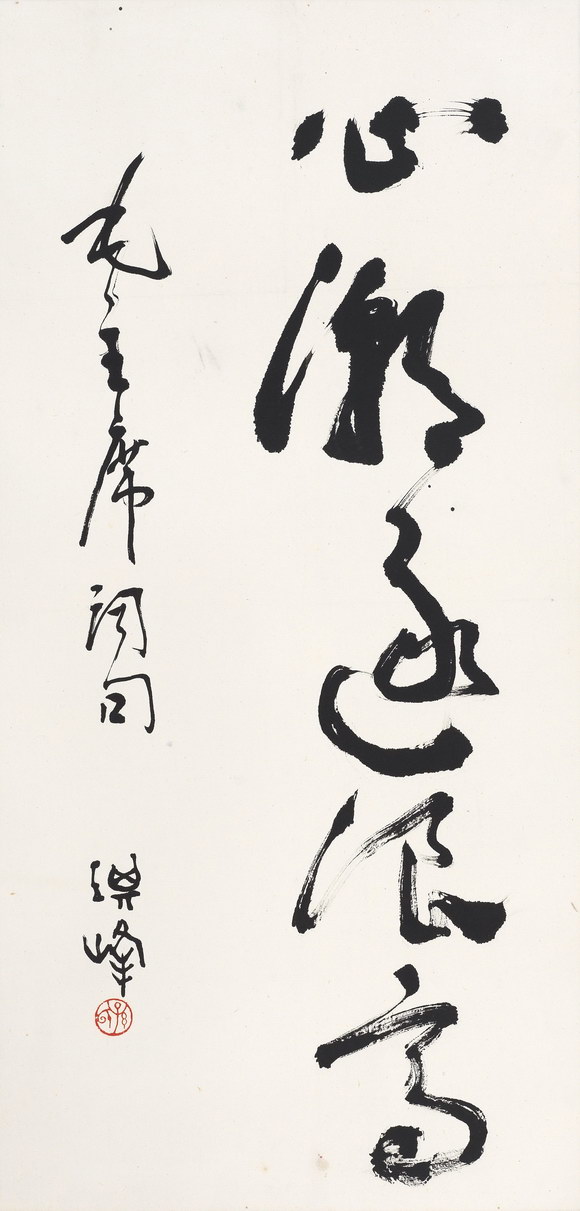 心潮逐浪高
毛主席词句
琪峰